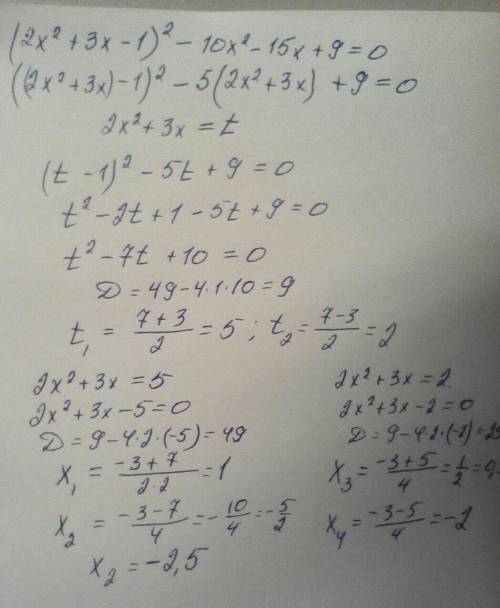 (2x² + 3x - 1)² - 10x² - 15x + 9 = 0
((2x² + 3x) - 1)² - 5(2x² + 3x) + 9 = 0
2x² + 3x = t
(t - 1)² - 5t + 9 = 0
t² - 2t + 1 - 5t + 9 = 0
t² - 7t + 10 = 0
D = 49 - 4·1·10 = 9
t₁ = (7 + 3)/2 = 5; t₂ = (7 - 3)/2 = 2
2x² + 3x = 5
2x² + 3x - 5 = 0
D = 9 - 4·2·(-5) = 49
x₁ = (-3 + 7)/(2·2) = 1
x₂ = (-3 - 7)/4 = -10/4 = -5/2
x₂ = -2,5
2x² + 3x = 2
2x² + 3x - 2 = 0
D = 9 - 4·2·(-2) = 25
x₃ = (-3 + 5)/4 = 1/2 = 0,
x₄ = (-3 - 5)/4 = -2